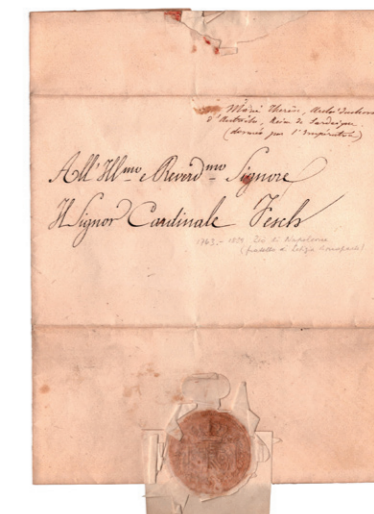 Marie Thérèse, Archiduchesse
d'Autriche, Reine de Sardaigne.
(donnée par l'Impératrice)
All'Ill.mo e Reverd.mo Signore
Il Signor Cardinale Fesch
1763 - 1839 Zio di Napoleone
(fratello di Letizia Bonaparte)